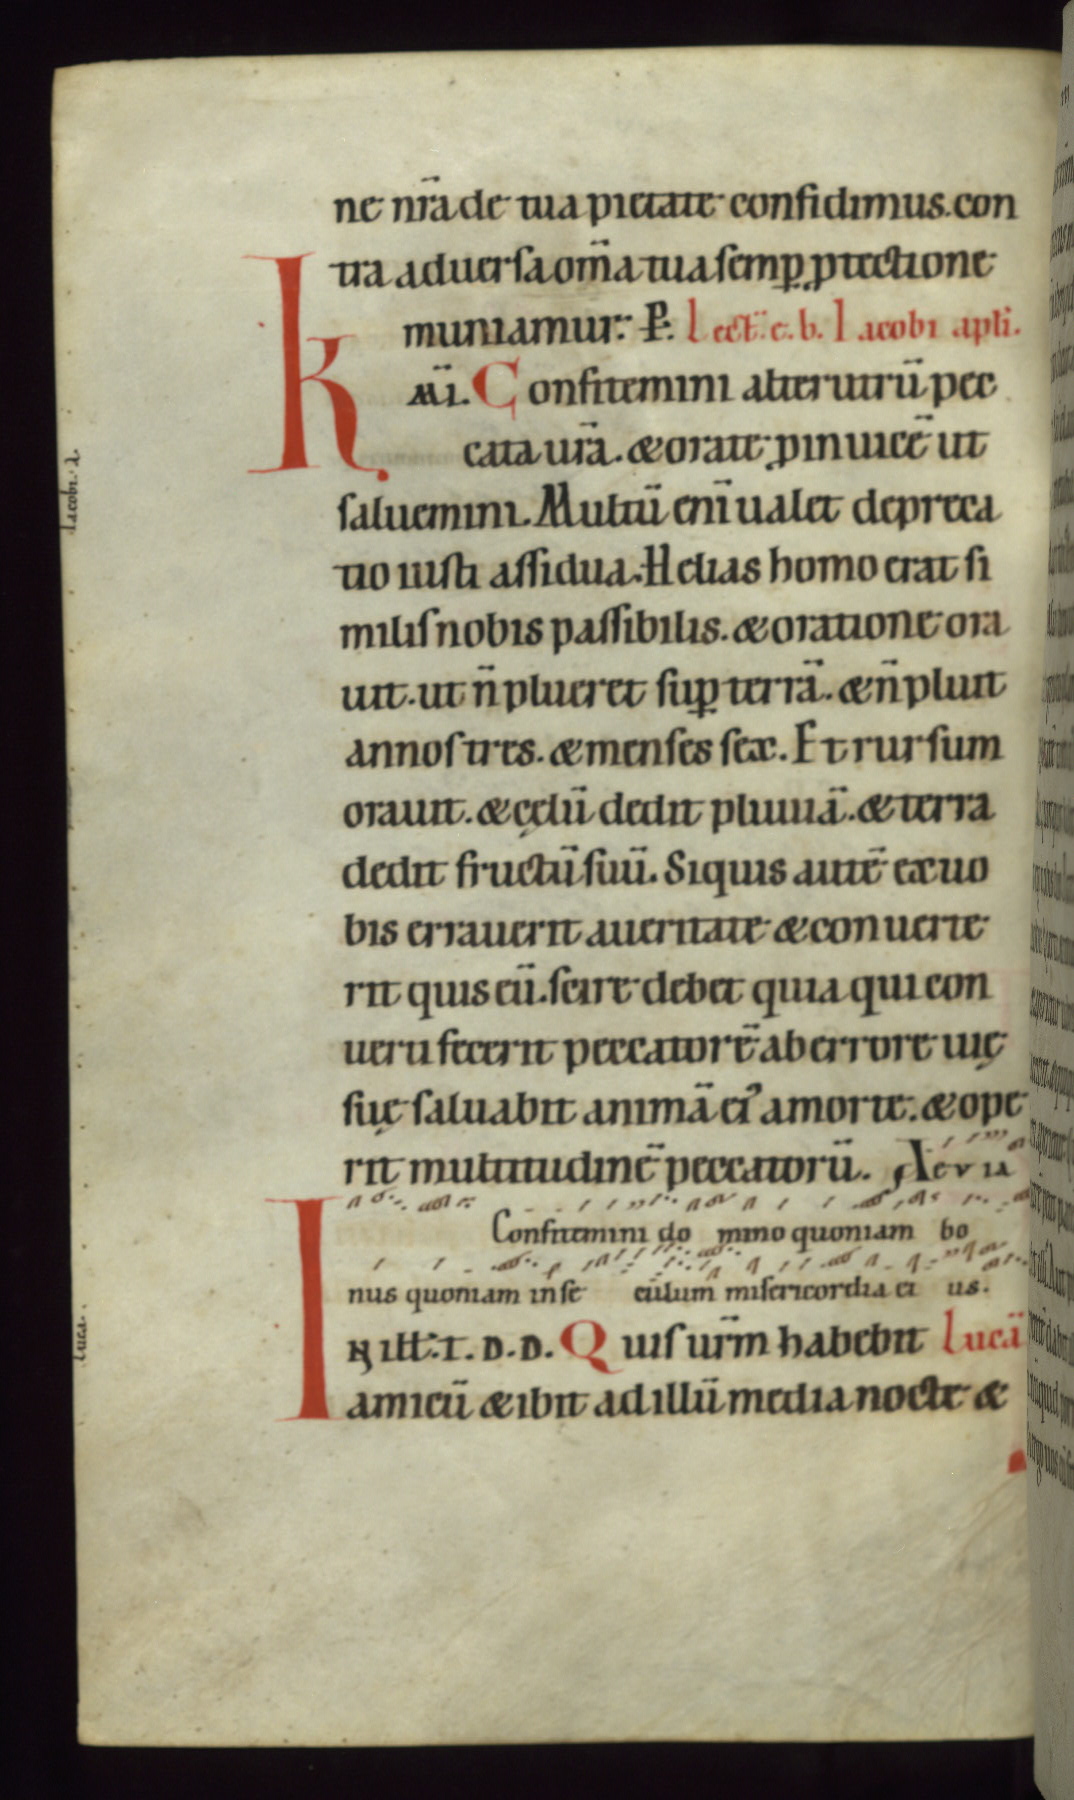 ne nr̄a de tua pietate confidimus. con
tra aduersa om̄a tua semꝑ ꝓtectione
muniamur. P. Lect. e. b. Iacobi apłi.
K
M̄I. Confitemini alterutrū pec
cata ur̄a. & orate ꝓ inuicē ut
saluemini. Multū eni̅ ualet depreca
tio iusti assidua. Helias homo erat si
milis nobis passibilis. & oratione ora
uit. ut n̄ plueret suꝑ terrā. & n̄ pluit
annos tres. & menses sex. Et rursum
orauit. & cęlū dedit pluuiā. & terra
dedit fructū suū. Siquis autē ex uo
bis errauerit a ueritate & conuerte
rit quis eū. scire debet quia qui con
uerti fecerit peccatorē ab errore uię
suę saluabit animā ei᾽ a morte. & ope
rit multitudinē peccatorū. Aevia
Confitemini domino quoniam bo
nus quoniam in seculum misericordia eius.
IN ill̄. T. D. D. Quis ur̄m habebit Lucā
amicū & ibit ad illū media nocte &
Iacobi.
Luca.